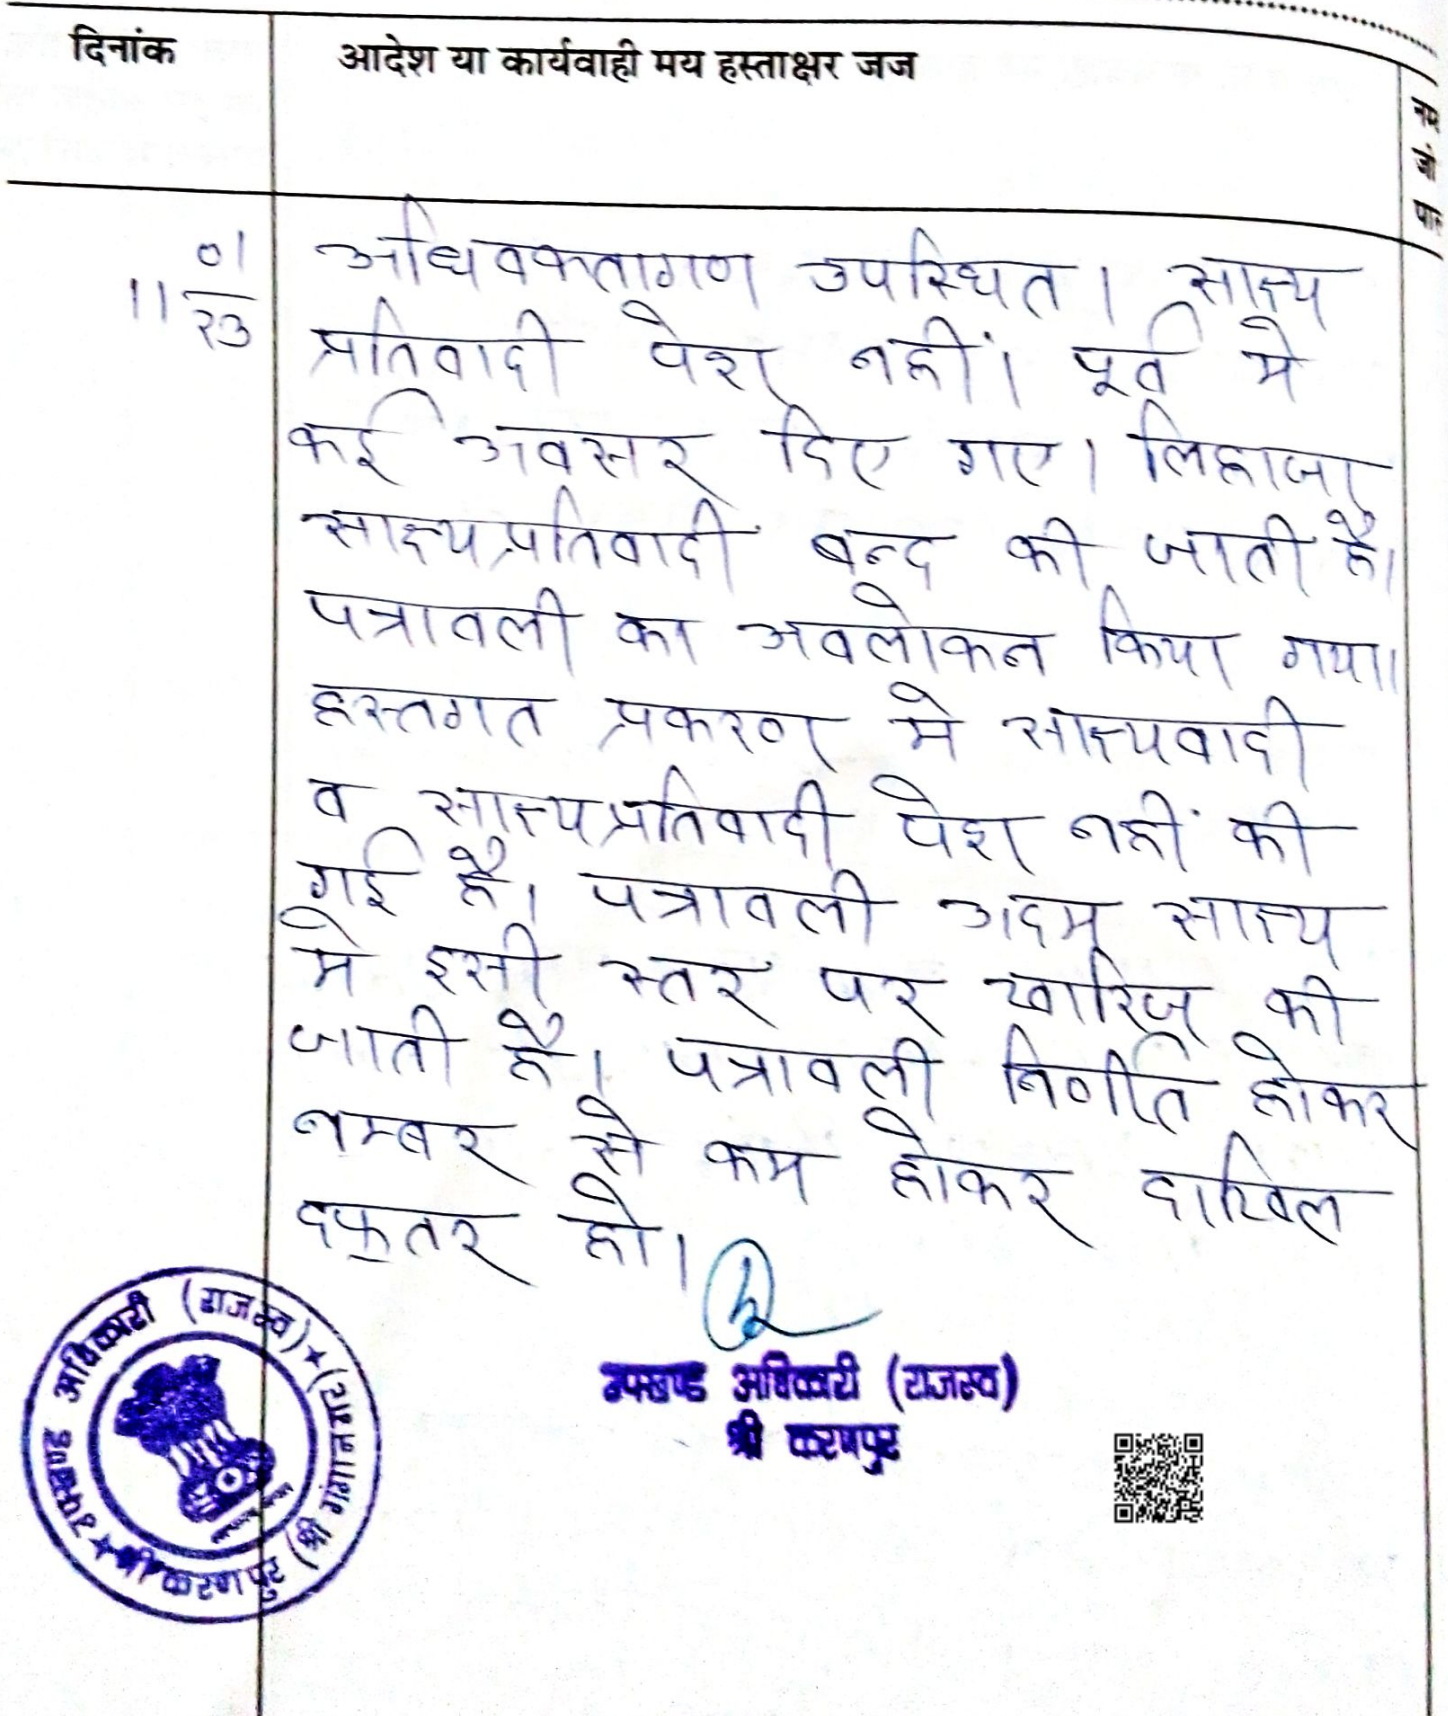 दिनांक
आदेश या कार्यवाही मय हस्ताक्षर जज
नम
जो
पार
01
11
23
अधिवक्तागण उपस्थित। साक्ष्य
प्रतिवादी पेश नहीं। पूर्व मे
कई अवसर दिए गए। लिहाजा
साक्ष्य प्रतिवादी बन्द की जाती है।
पत्रावली का अवलोकन किया गया।
हस्तगत प्रकरण मे साक्ष्यवादी
व साक्ष्यप्रतिवादी पेश नहीं की
गई है। पत्रावली अदम साक्ष्य
मे इसी स्तर पर खारिज की
जाती है। पत्रावली निर्णीत होकर
नम्बर से कम होकर दाखिल
दफ़तर हो।
उपखण्ड अधिकारी (राजस्व)
श्री करणपुर
उपखण्ड अधिकारी (राजस्व)
श्री करणपुर (श्री गंगानगर)